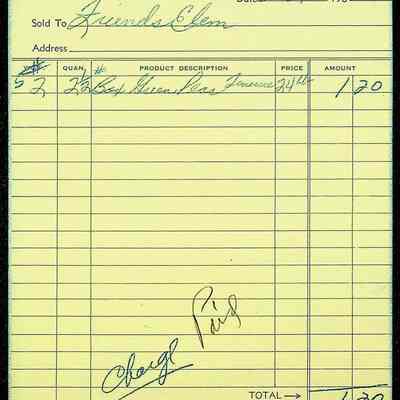 Date 19
Sold To Friends Elem
Address
# QUAN. PRODUCT DESCRIPTION PRICE AMOUNT
5 2 2½ # Box Green Peas 24 1 20
Paid
Charge
TOTAL → 1 20